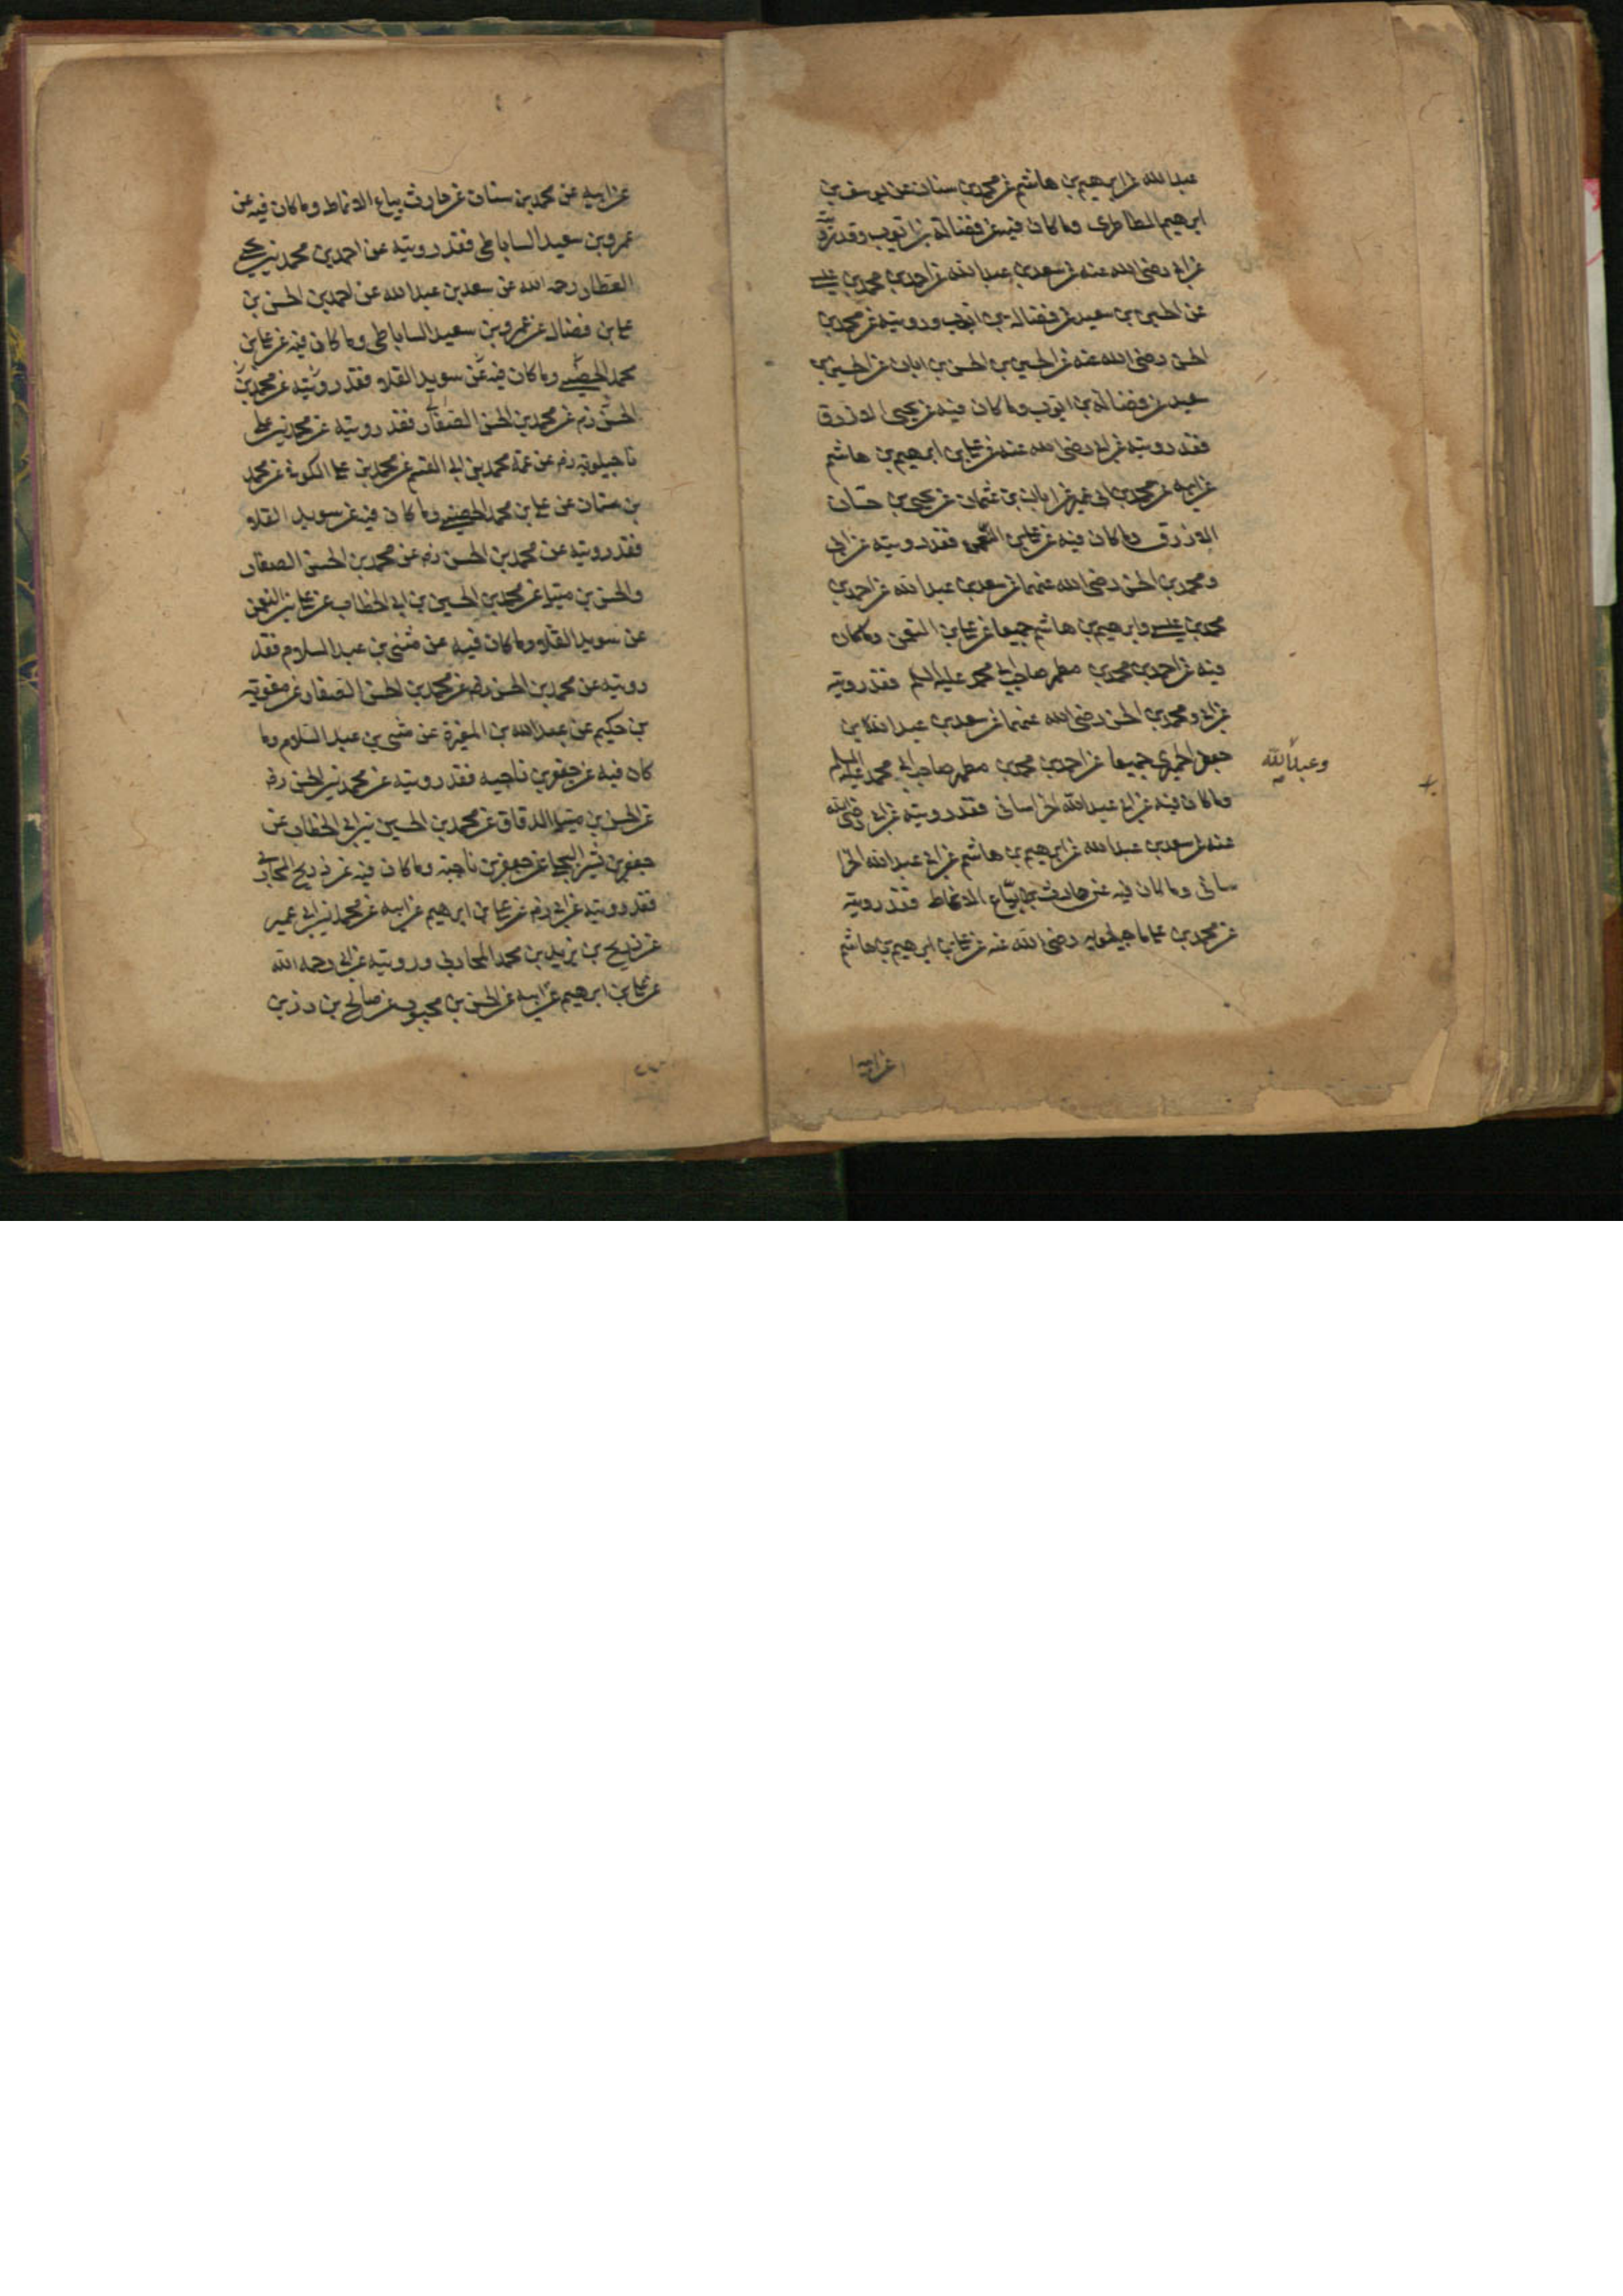 عبد الله عن ابرهيم بن هاشم عن محمد بن سنان عن يوسف بن
ابرهيم الطاطرى وما كان فيه عن فضالة بن ايوب فقد رويته
عن ابى رضى الله عنه عن سعد بن عبد الله عن احمد بن محمد بن عيسى
عن الحسين بن سعيد عن فضالة بن ايوب ورويته عن محمد بن
الحسن رضى الله عنه عن الحسين بن الحسن بن ابان عن الحسين بن
سعيد عن فضالة بن ايوب وما كان فيه عن يحيى الازرق
فقد رويته عن ابى رضى الله عنه عن على بن ابرهيم بن هاشم
عن ابيه عن محمد بن ابى عمير عن ابان بن عثمان عن يحيى بن حسان
الازرق وما كان فيه عن على بن النعمن فقد رويته عن ابى
ومحمد بن الحسن رضى الله عنهما عن سعد بن عبد الله عن احمد بن
محمد بن عيسى وابرهيم بن هاشم جميعا عن على بن النعمن وما كان
فيه عن احمد بن محمد بن مطهر صاحب ابى محمد عليه السلم فقد رويته
عن ابى ومحمد بن الحسن رضى الله عنهما عن سعد بن عبد الله بن
وعبد الله
جعفر الحميرى جميعا عن احمد بن محمد بن مطهر صاحب ابى محمد عليه السلم
وما كان فيه عن ابى عبد الله الخراسانى فقد رويته عن ابى رضى الله
عنه عن سعد بن عبد الله عن ابرهيم بن هاشم عن ابى عبد الله الخرا
سانى وما كان فيه عن حارث بياع الانماط فقد رويته
عن محمد بن على ماجيلويه رضى الله عنه عن على بن ابرهيم بن هاشم
عن ابيه
عن ابيه عن محمد بن سنان عن حارث بياع الانماط وما كان فيه عن
عمرو بن سعيد الساباطى فقد رويته عن احمد بن محمد بن يحيى
العطار رحمه الله عن سعد بن عبد الله عن احمد بن الحسن بن
على بن فضال عن عمرو بن سعيد الساباطى وما كان فيه عن على بن
محمد الحصينى وما كان فيه عن سويد القلا فقد رويته عن محمد بن
الحسن رض عن محمد بن الحسن الصفار فقد رويته عن محمد بن على
ماجيلويه رض عن عمه محمد بن ابى القسم عن محمد بن على الكوفى عن محمد
بن سنان عن على بن محمد الحصينى وما كان فيه عن سويد القلا
فقد رويته عن محمد بن الحسن رض عن محمد بن الحسن الصفار
والحسن بن متيل عن محمد بن الحسين بن ابى الخطاب عن على بن النعمن
عن سويد القلا وما كان فيه عن مثنى بن عبد السلام فقد
رويته عن محمد بن الحسن رض عن محمد بن الحسن الصفار عن معوية
بن حكيم عن عبد الله بن المغيرة عن مثنى بن عبد السلام وما
كان فيه عن جعفر بن ناجيه فقد رويته عن محمد بن الحسن رض
عن الحسن بن متيل الدقاق عن محمد بن الحسين بن ابى الخطاب عن
جعفر بن بشير البجلى عن جعفر بن ناجية وما كان فيه عن ذريح المحاربى
فقد رويته عن ابى رض عن على بن ابرهيم عن ابيه عن محمد بن ابى عمير
عن ذريح بن يزيد بن محمد المحاربى ورويته عن ابى رحمه الله
عن على بن ابرهيم عن ابيه عن الحسن بن محبوب عن صالح بن رزين